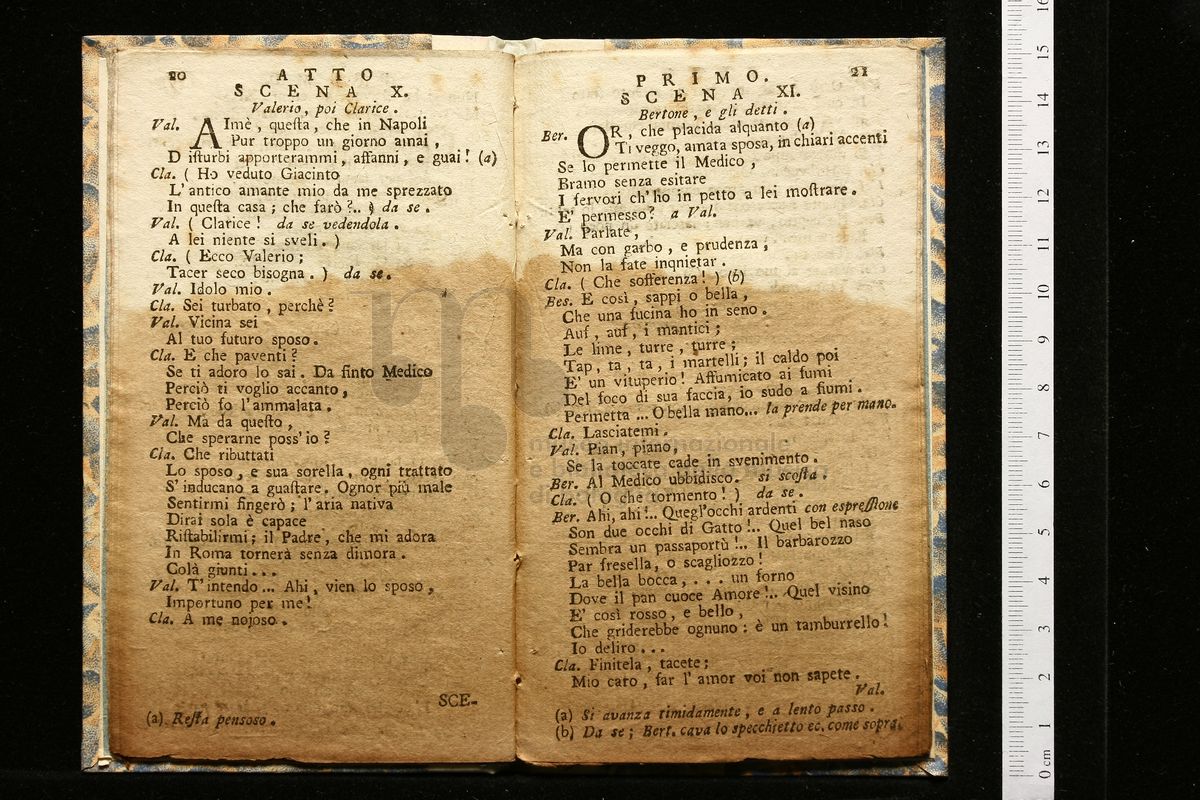 20
ATTO
SCENA X.
Valerio, poi Clarice.
Val. AImè, questa, che in Napoli
Pur troppo un giorno amai,
Disturbi apporterammi, affanni, e guai! (a)
Cla. ( Ho veduto Giacinto
L'antico amante mio da me sprezzato
In questa casa; che farò?.. ) da se.
Val. ( Clarice! da se vedendola.
A lei niente si sveli. )
Cla. ( Ecco Valerio;
Tacer seco bisogna. ) da se.
Val. Idolo mio.
Cla. Sei turbato, perchè?
Val. Vicina sei
Al tuo futuro sposo.
Cla. E che paventi?
Se ti adoro lo sai. Da finto Medico
Perciò ti voglio accanto,
Perciò fo l'ammalata.
Val. Ma da questo,
Che sperarne poss'io?
Cla. Che ributtati
Lo sposo, e sua sorella, ogni trattato
S'inducano a guastare. Ognor più male
Sentirmi fingerò; l'aria nativa
Dirai sola è capace
Ristabilirmi; il Padre, che mi adora
In Roma tornerà senza dimora.
Colà giunti...
Val. T'intendo... Ahi, vien lo sposo,
Importuno per me!
Cla. A me nojoso.
SCE-
(a) Resta pensoso.
PRIMO.
21
SCENA XI.
Bertone, e gli detti.
Ber. OR, che placida alquanto (a)
Ti veggo, amata sposa, in chiari accenti
Se lo permette il Medico,
Bramo senza esitare
I fervori ch'ho in petto a lei mostrare.
E' permesso? a Val.
Val. Parlate,
Ma con garbo, e prudenza,
Non la fate inqnietar.
Cla. ( Che sofferenza! ) (b)
Bes. E così, sappi o bella,
Che una fucina ho in seno.
Auf, auf, i mantici;
Le lime, turre, turre;
Tap, ta, ta, i martelli; il caldo poi
E' un vituperio! Affumicato ai fumi
Del foco di sua faccia, io sudo a fiumi.
Permetta ... O bella mano... la prende per mano.
Cla. Lasciatemi.
Val. Pian, piano,
Se la toccate cade in svenimento.
Ber. Al Medico ubbidisco. si scosta.
Cla. ( O che tormento! ) da se.
Ber. Ahi, ahi!.. Quegl'occhi ardenti con espressione
Son due occhi di Gatto!.. Quel bel naso
Sembra un passaportù!.. Il barbarozzo
Par fresella, o scagliozzo!
La bella bocca, ... un forno
Dove il pan cuoce Amore!.. Quel visino
E' così rosso, e bello,
Che griderebbe ognuno: è un tamburrello!
Io deliro...
Cla. Finitela, tacete;
Mio caro, far l'amor voi non sapete.
Val.
(a) Si avanza timidamente, e a lento passo.
(b) Da se; Bert. cava lo specchietto ec. come sopra.
0 cm 1 2 3 4 5 6 7 8 9 10 11 12 13 14 15 16